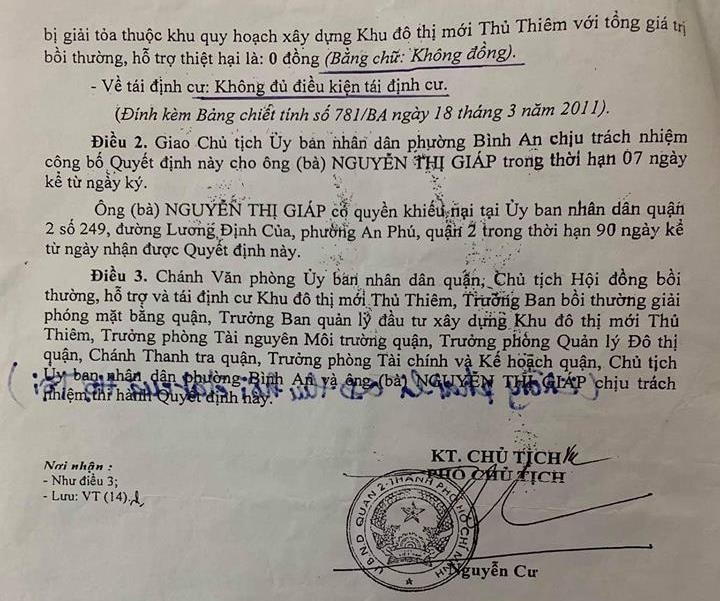 bị giải tỏa thuộc khu quy hoạch xây dựng Khu đô thị mới Thủ Thiêm với tổng giá trị
bồi thường, hỗ trợ thiệt hại là: 0 đồng (Bằng chữ: Không đồng).
- Về tái định cư: Không đủ điều kiện tái định cư.
(Đính kèm Bảng chiết tính số 781/BA ngày 18 tháng 3 năm 2011).
Điều 2. Giao Chủ tịch Ủy ban nhân dân phường Bình An chịu trách nhiệm
công bố Quyết định này cho ông (bà) NGUYỄN THỊ GIÁP trong thời hạn 07 ngày
kể từ ngày ký.
Ông (bà) NGUYỄN THỊ GIÁP có quyền khiếu nại tại Ủy ban nhân dân quận
2 số 249, đường Lương Định Của, phường An Phú, quận 2 trong thời hạn 90 ngày kể
từ ngày nhận được Quyết định này.
Điều 3. Chánh Văn phòng Ủy ban nhân dân quận, Chủ tịch Hội đồng bồi
thường, hỗ trợ và tái định cư Khu đô thị mới Thủ Thiêm, Trưởng Ban bồi thường giải
phóng mặt bằng quận, Trưởng Ban quản lý đầu tư xây dựng Khu đô thị mới Thủ
Thiêm, Trưởng phòng Tài nguyên Môi trường quận, Trưởng phòng Quản lý Đô thị
quận, Chánh Thanh tra quận, Trưởng phòng Tài chính và Kế hoạch quận, Chủ tịch
Ủy ban nhân dân phường Bình An và ông (bà) NGUYỄN THỊ GIÁP chịu trách
nhiệm thi hành Quyết định này.
Nơi nhận :
- Như điều 3;
- Lưu: VT (14).
KT. CHỦ TỊCH
PHÓ CHỦ TỊCH
U.B.N.D QUẬN 2-THÀNH PHỐ HỒ CHÍ MINH
Nguyễn Cư